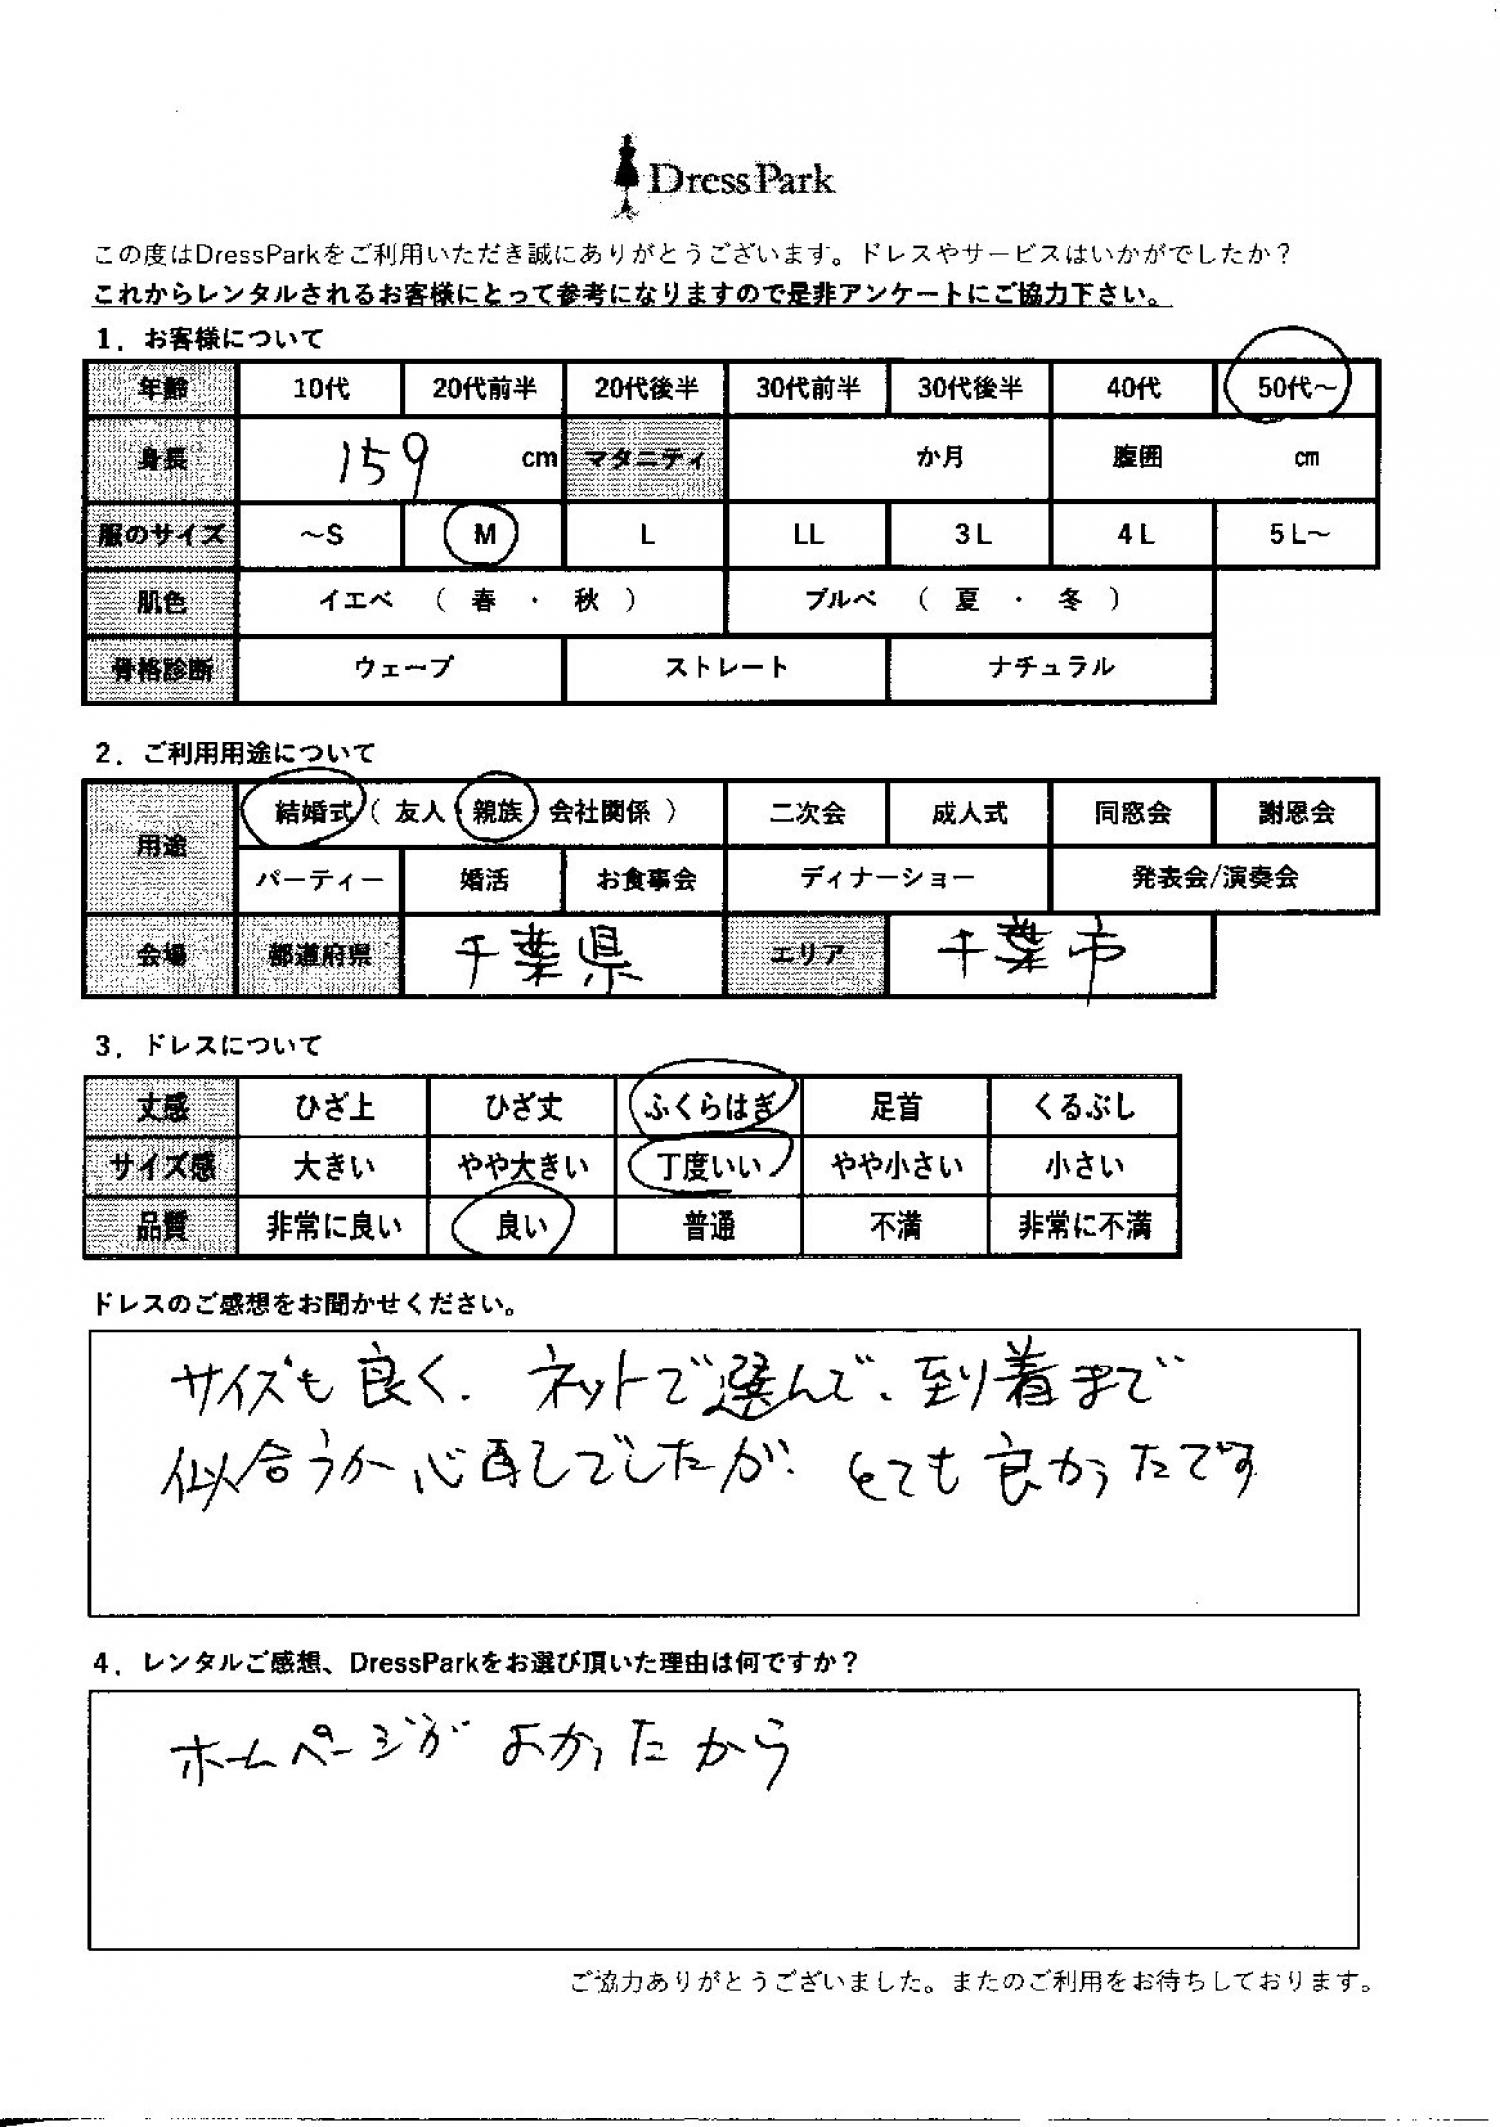 DressPark
この度はDressParkをご利用いただき誠にありがとうございます。ドレスやサービスはいかがでしたか？
これからレンタルされるお客様にとって参考になりますので是非アンケートにご協力下さい。
1．お客様について
年齢 10代 20代前半 20代後半 30代前半 30代後半 40代 50代～
身長 159 cm マタニティ か月 腹囲 cm
服のサイズ ～S M L LL 3L 4L 5L～
肌色 イエベ （ 春 ・ 秋 ） ブルベ （ 夏 ・ 冬 ）
骨格診断 ウェーブ ストレート ナチュラル
2．ご利用用途について
用途 結婚式（ 友人 親族 会社関係 ） 二次会 成人式 同窓会 謝恩会
パーティー 婚活 お食事会 ディナーショー 発表会/演奏会
会場 都道府県 千葉県 エリア 千葉市
3．ドレスについて
丈感 ひざ上 ひざ丈 ふくらはぎ 足首 くるぶし
サイズ感 大きい やや大きい 丁度いい やや小さい 小さい
品質 非常に良い 良い 普通 不満 非常に不満
ドレスのご感想をお聞かせください。
サイズも良く、ネットで選んで、到着まで
似合うか心配でしたが、とても良かったです
4．レンタルご感想、DressParkをお選び頂いた理由は何ですか？
ホームページがよかったから
ご協力ありがとうございました。またのご利用をお待ちしております。